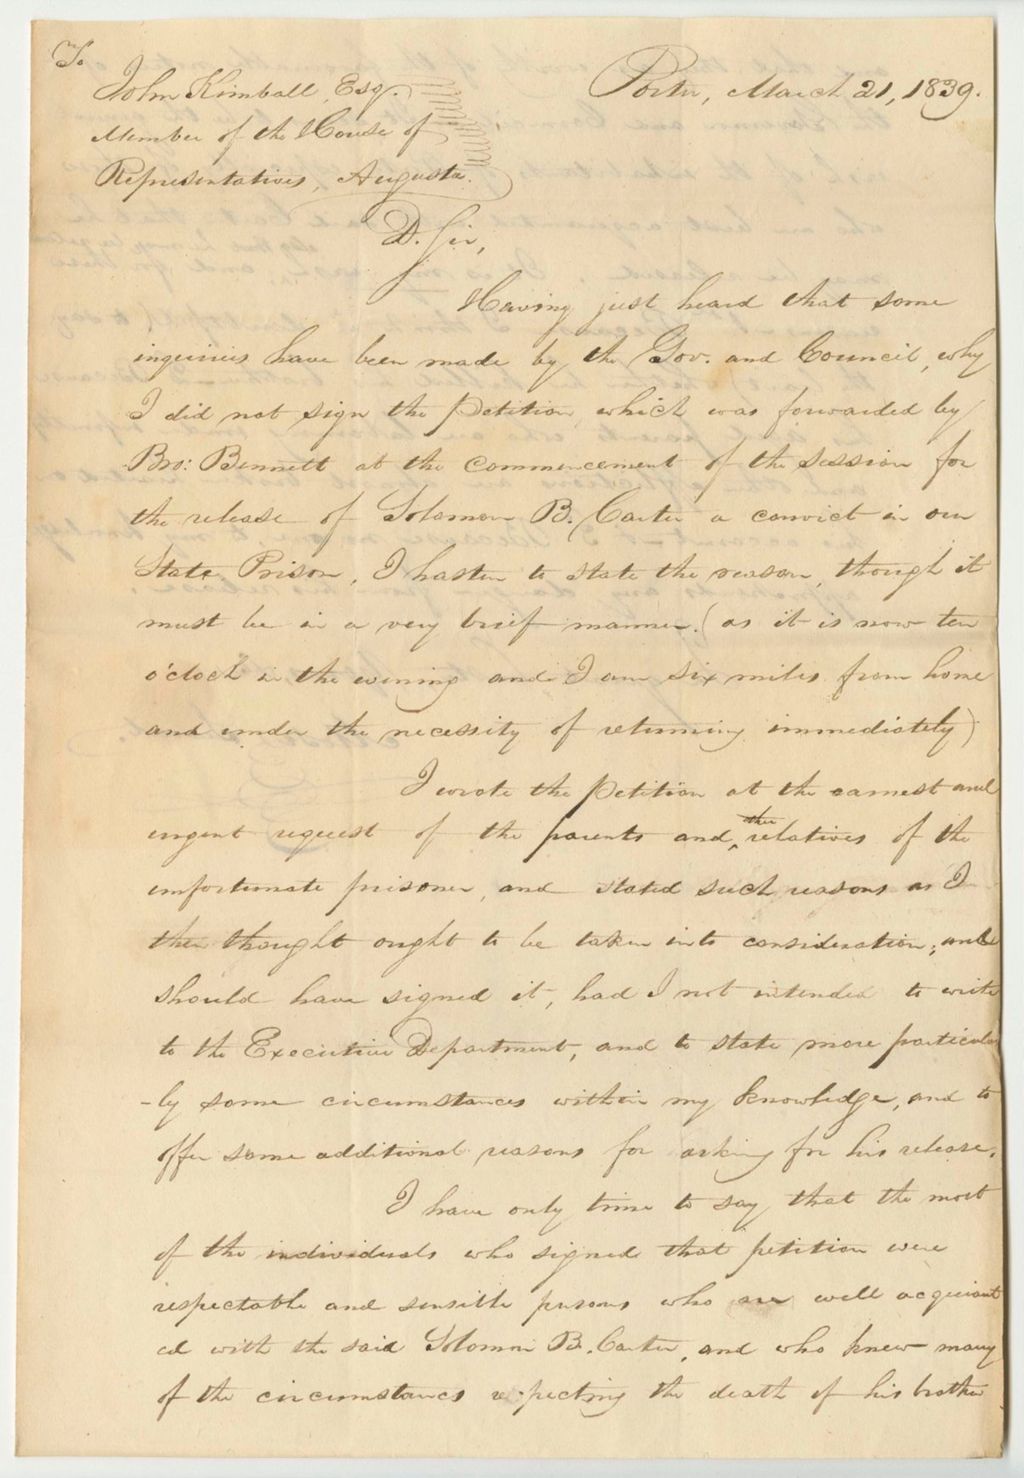 To
John Kimball, Esq.
Porter, March 21, 1839.
Member of the House of
Representatives, Augusta.
D. Sir,
Having just heard that some
inquiries have been made by the Gov. and Council, why
I did not sign the Petition which was forwarded by
Bro: Bennett at the commencement of the session for
the release of Solomon B. Carter a convict in our
State Prison, I hasten to state the reason, though it
must be in a very brief manner. (as it is now ten
o'clock in the evening and I am six miles from home
and under the necessity of returning immediately)
I wrote the Petition at the earnest and
urgent request of the parents and other relatives of the
unfortunate prisoner, and stated such reasons as I
then thought ought to be taken into consideration; and
should have signed it, had I not intended to write
to the Executive Department, and to state more particular
-ly some circumstances within my knowledge, and to
offer some additional reasons for asking for his release.
I have only time to say that the most
of the individuals who signed that petition were
respectable and sensible persons who are well acquaint
ed with the said Solomon B. Carter, and who knew many
of the circumstances respecting the death of his brother